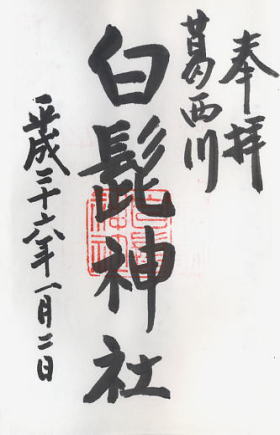 奉拝
葛西川
白髭神社
平成二十六年一月二日